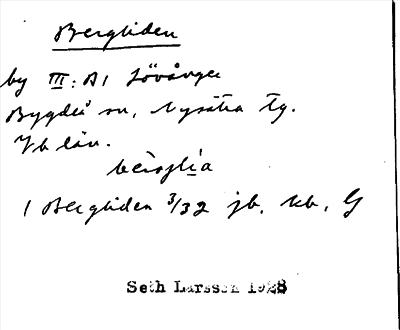 Bergliden
by III: B1 Lövånger
Bygdeå sn, Nysätra tg.
Vb län.
1 Bergliden 3/32 jb, kb, G
Seth Larsson 1928